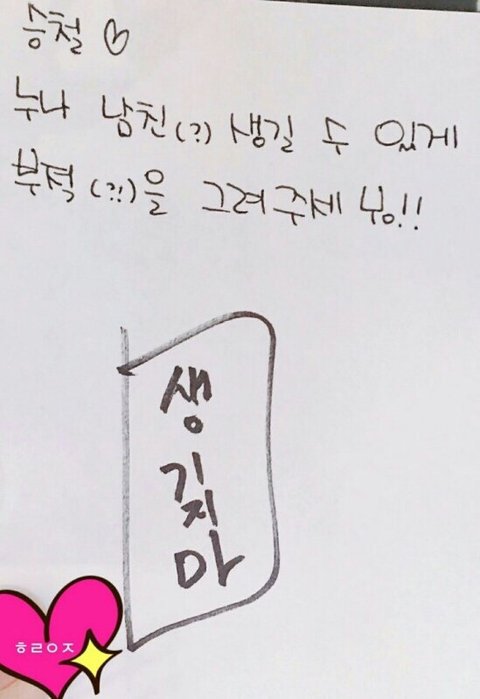 승철 ♡
누나 남친(?) 생길 수 있게
부적(?!)을 그려주세봉!!
생
기지
마
ㅎㄹㅇㅈ